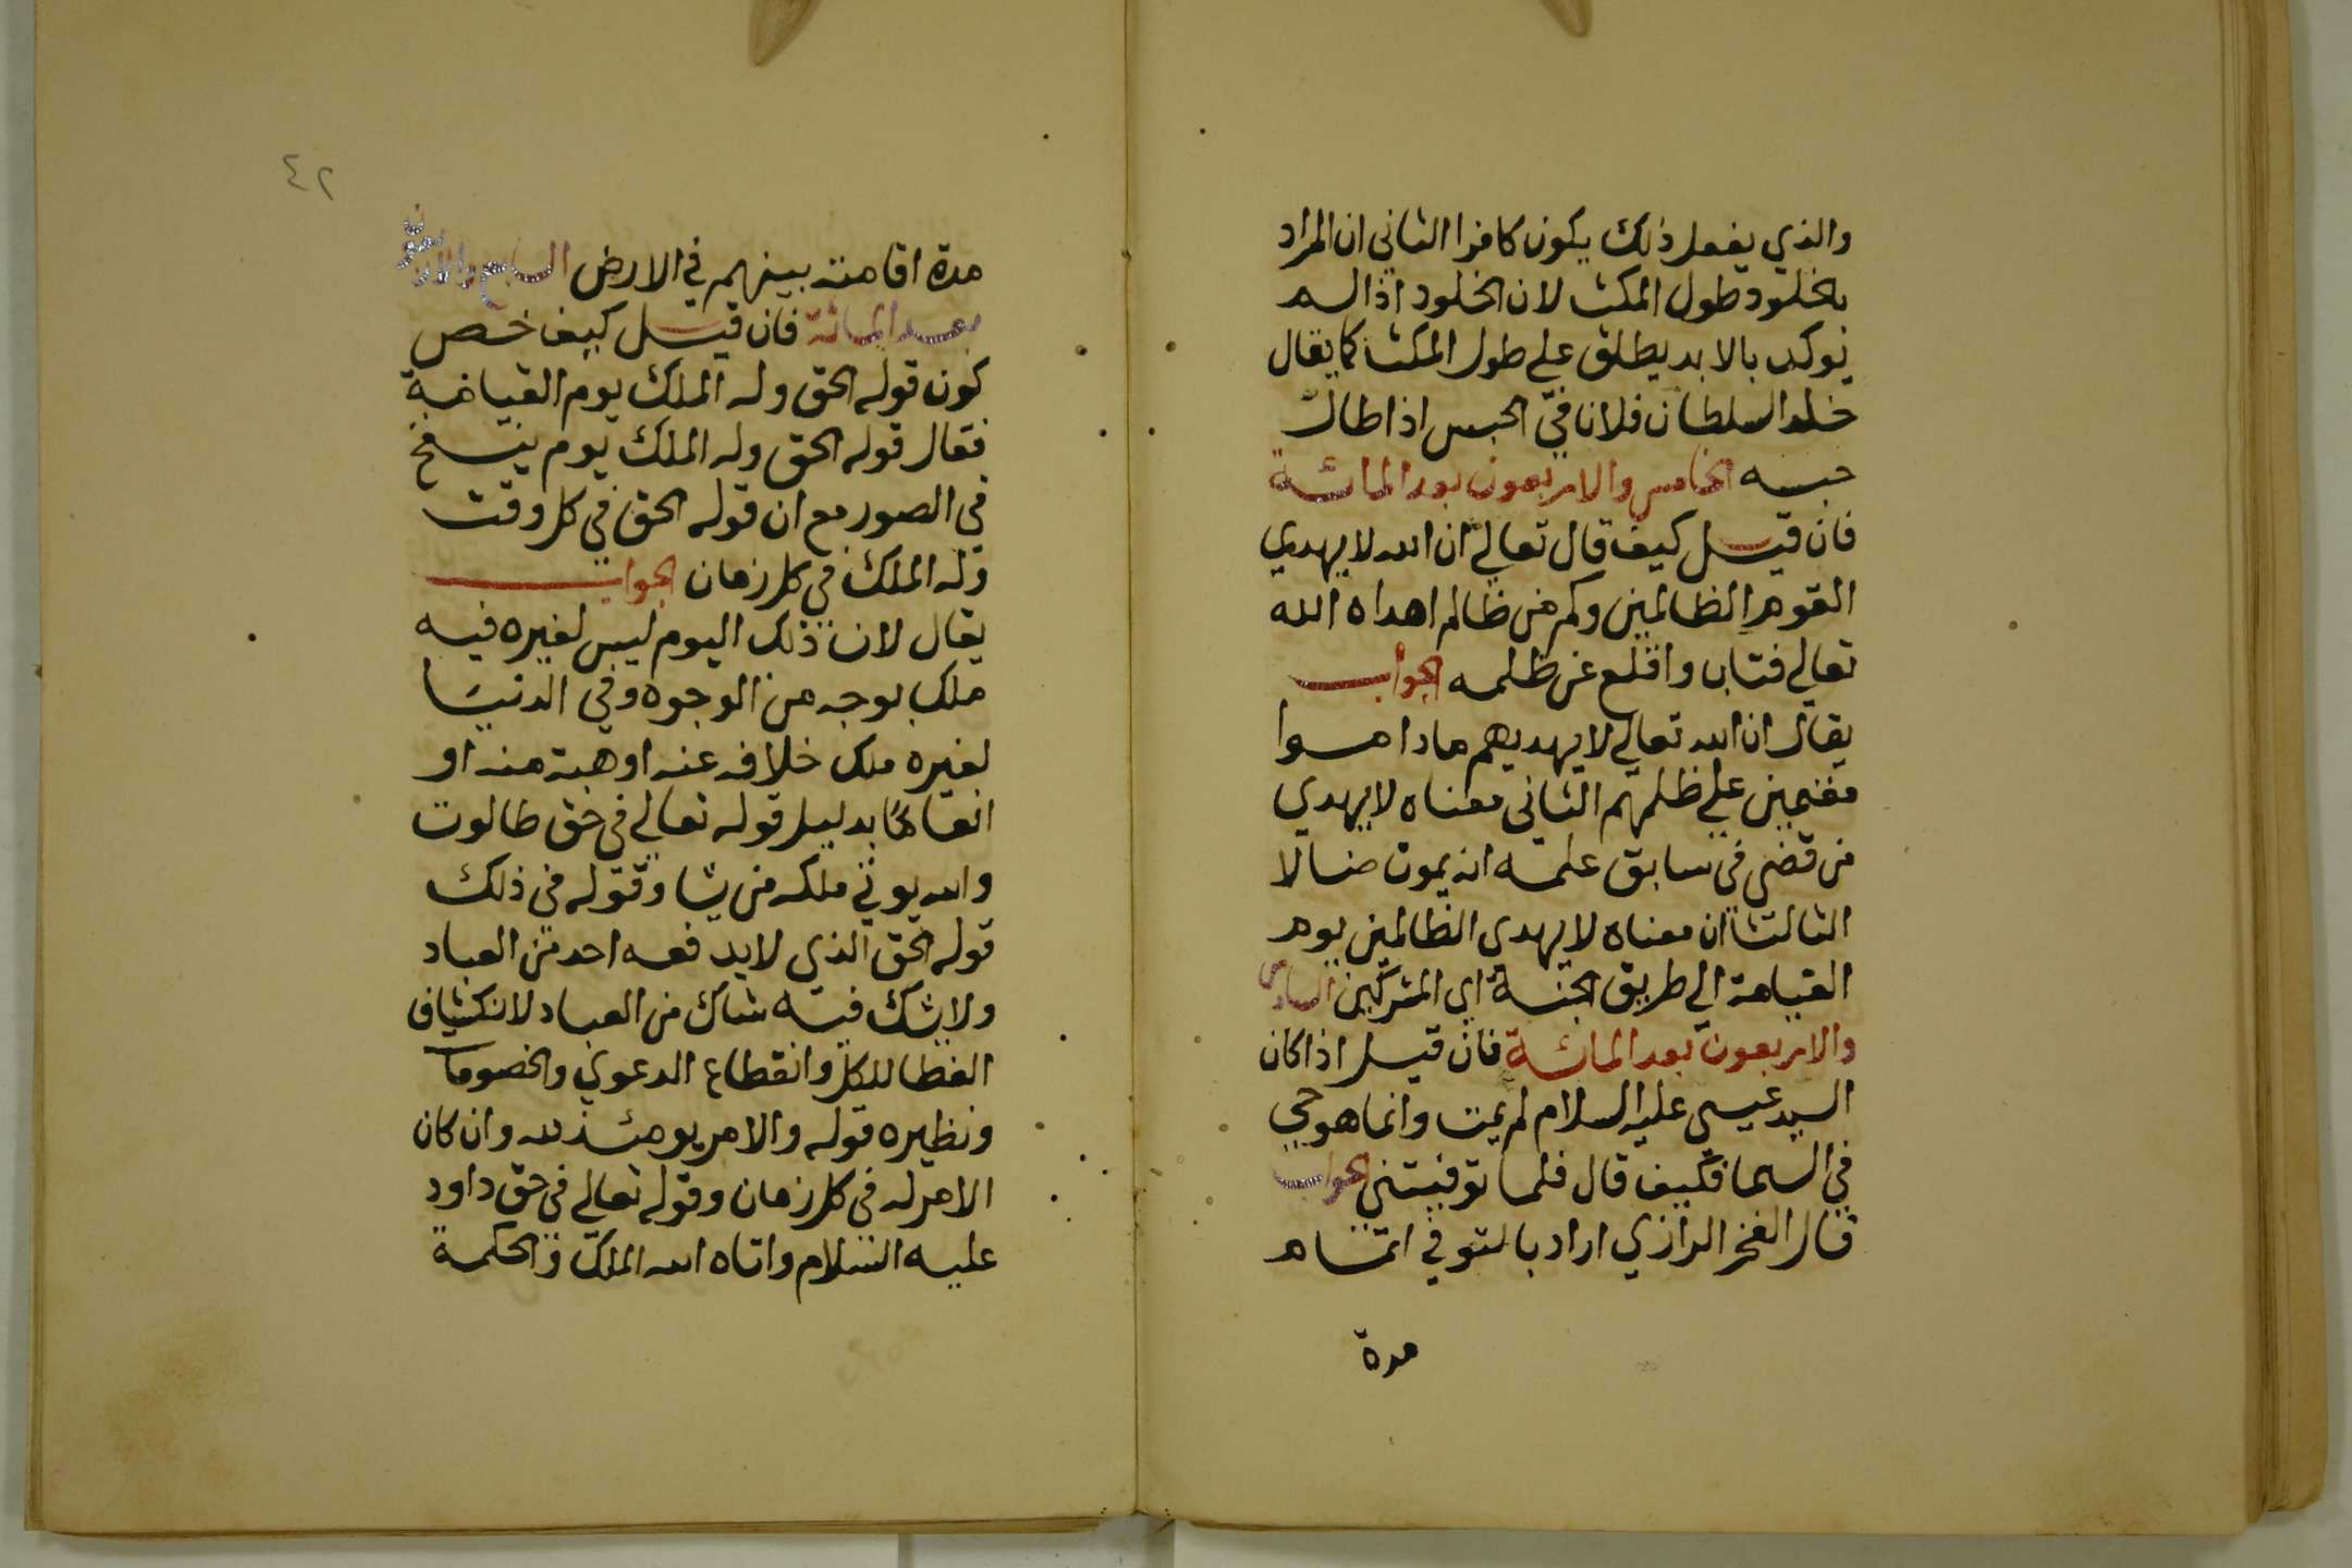 والذي يفعل ذلك يكون كافرا الثاني ان المراد
بخلود طول المكث لان الخلود اذا لم
يوكد بالابد يطلق علي طول المكث كما يقال
خلد السلطان فلانا في الحبس اذا طال
حبسه الخامس والاربعون بعد المائة
فان قيل كيف قال تعالي ان الله لا يهدي
القوم الظالمين وكم من ظالم اهداه الله
تعالي فتاب واقلع عن ظلمه الجواب
يقال ان الله تعالي لا يهديهم ما داموا
مقيمين علي ظلمهم الثاني معناه لا يهدي
من قضي في سابق علمه انه يموت ضالا
الثالث ان معناه لا يهدي الظالمين يوم
القيامة الي طريق الجنة اي المشركين السادس
والاربعون بعد المائة فان قيل اذا كان
السيد عيسي عليه السلام لم يمت وانما هو حي
في السما فكيف قال فلما توفيتني الجواب
قال الفخر الرازي اراد بالتوفي اتمام
مدة
٤٢
مدة اقامته بينهم في الارض السابع والاربعون
بعد المائة فان قيل كيف خص
كون قوله الحق وله الملك يوم القيامة
فقال قوله الحق وله الملك يوم ينفخ
في الصور مع ان قوله الحق في كل وقت
وله الملك في كل زمان الجواب
يقال لان ذلك اليوم ليس لغيره فيه
ملك بوجه من الوجوه وفي الدنيا
لغيره ملك خلافه عنه او هبة منه او
انعاما بدليل قوله تعالي في حق طالوت
والله يوتي ملكه من يشا وقوله في ذلك
قوله الحق الذي لا يدفعه احد من العباد
ولا يشك فيه شاك من العباد لانكشاف
الغطا للكل وانقطاع الدعوي والخصومات
ونظيره قوله والامر يومئذ لله وان كان
الامر له في كل زمان وقوله تعالي في حق داود
عليه السلام واتاه الله الملك والحكمة